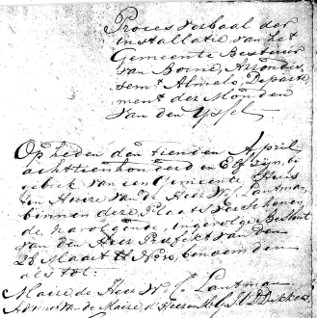 Proces verbaal der
installatie van het
Gemeente Bestuur
van Borne, Arrondis
semt Almelo, Departe
ment der Monden
van den Yssel
Op heden den tienden April
achttienhonderd en Elf zyn, by
gebrek van een Gemeente Huis
ten Huize van de Heer W. J. Lantman
binnen deze Plaats verschenen
de navolgende ingevolge Besluit
van den Heer Prefekt van den
28 Maart ll. No benoemden
als tot:
Maire de Heer W. J. Lantman
Adjunct van de Maire, d Heer